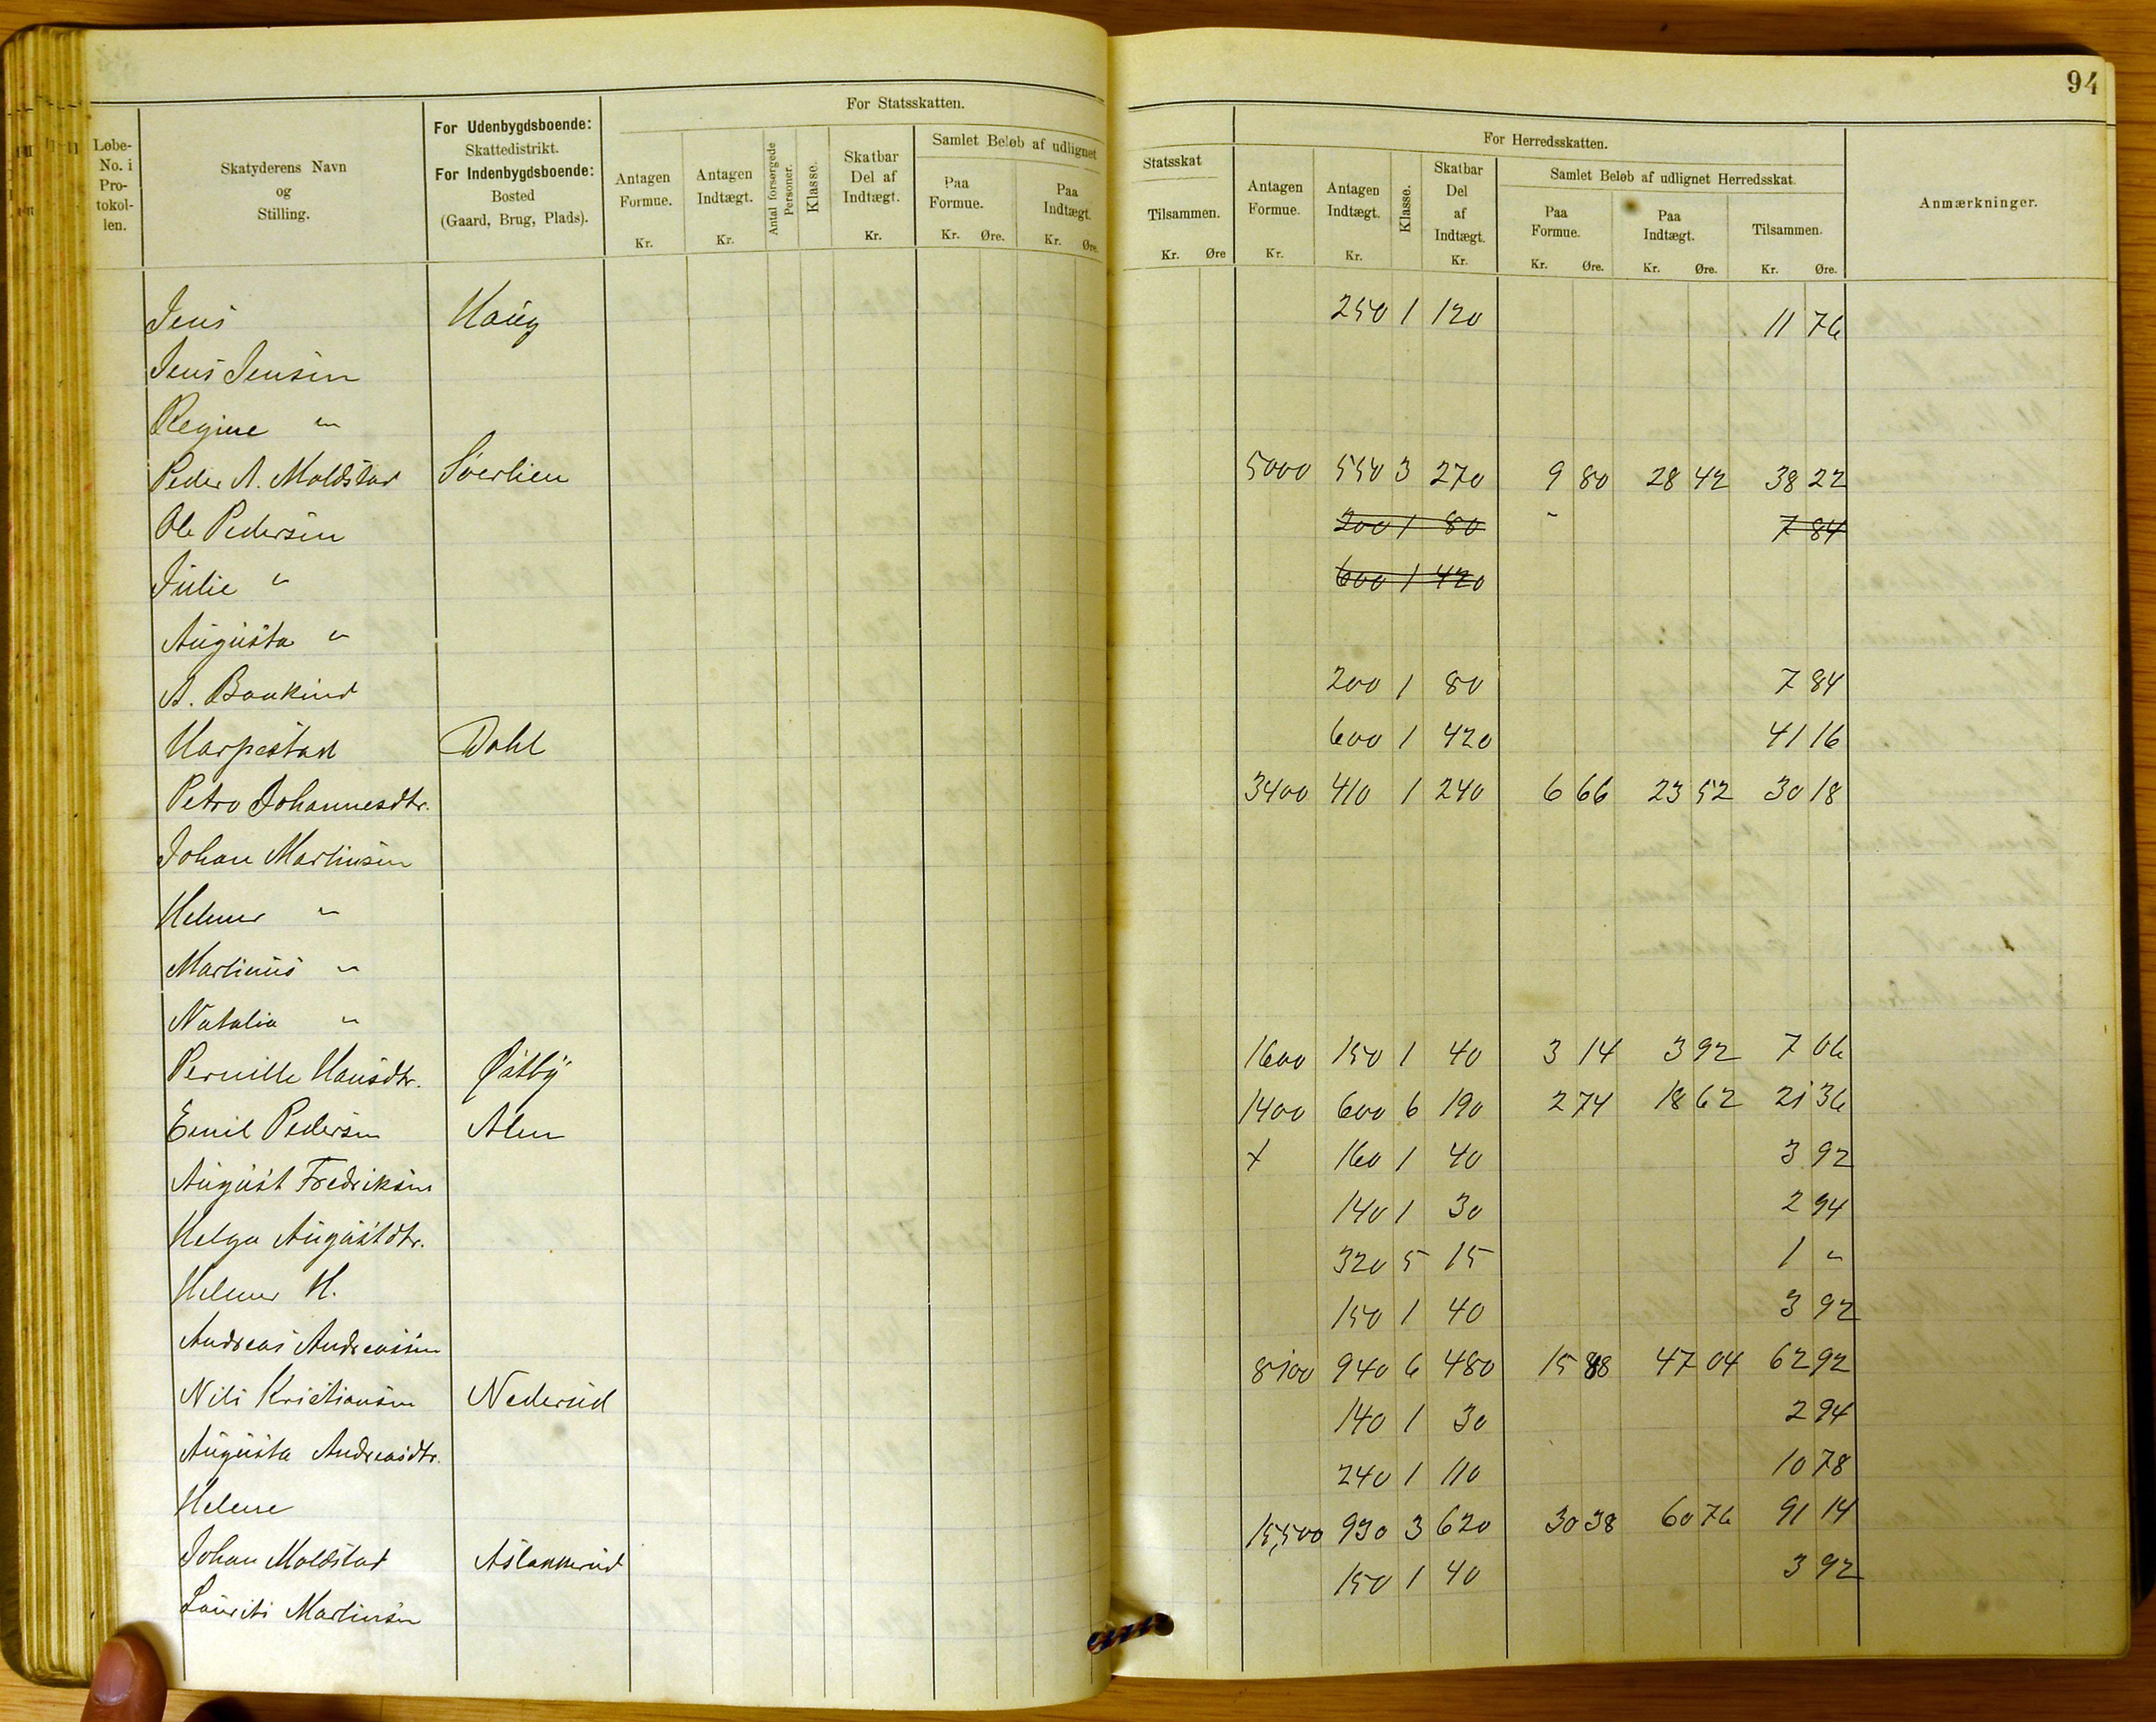 94
Løbe-No. i Pro-tokol-len.
Skatyderens Navn og Stilling.
For Udenbygdsboende: Skattedistrikt. For Indenbygdsboende: Bosted (Gaard, Brug, Plads).
For Statsskatten.
Antagen Formue. Kr.
Antagen Indtægt. Kr.
Antal forsørgede Personer.
Klasse.
Skatbar Del af Indtægt. Kr.
Samlet Beløb af udlignet
Paa Formue. Kr. Øre.
Paa Indtægt. Kr. Øre.
Statsskat
Tilsammen. Kr. Øre
For Herredsskatten.
Antagen Formue. Kr.
Antagen Indtægt. Kr.
Klasse.
Skatbar Del af Indtægt. Kr.
Samlet Beløb af udlignet Herredsskat.
Paa Formue. Kr. Øre.
Paa Indtægt. Kr. Øre.
Tilsammen. Kr. Øre.
Anmærkninger.
Jens Haug 250 1 120 11 76
Jens Jensen
Regine "
Peder A. Moldstad Sverlien 5000 550 3 270 9 80 28 42 38 22
Ole Pedersen 200 1 80 - 7 84
Julie " 600 1 420
Augusta "
A. Baukind 200 1 80 7 84
Harpestad Dahl 600 1 420 41 16
Petro Johannesdtr. 3400 410 1 240 6 66 23 52 30 18
Johan Martinsen
Helmer "
Martinus "
Natalia "
Pernille Hansdtr. Østby 1600 150 1 40 3 14 3 92 7 06
Emil Pedersen Alm 1400 600 6 190 2 74 18 62 21 36
August Fredriksen x 160 1 40 3 92
Helga Augustdtr. 140 1 30 2 94
Helmer H. 320 5 15 1 "
Andreas Andreassen 150 1 40 3 92
Nils Kristiansen Nederud 8100 940 6 480 15 88 47 04 62 92
Augusta Andreasdtr. 140 1 30 2 94
Helene 240 1 110 10 78
Johan Moldstad Aslakkerud 15,500 930 3 620 30 38 60 76 91 14
Laurits Martinsen 150 1 40 3 92